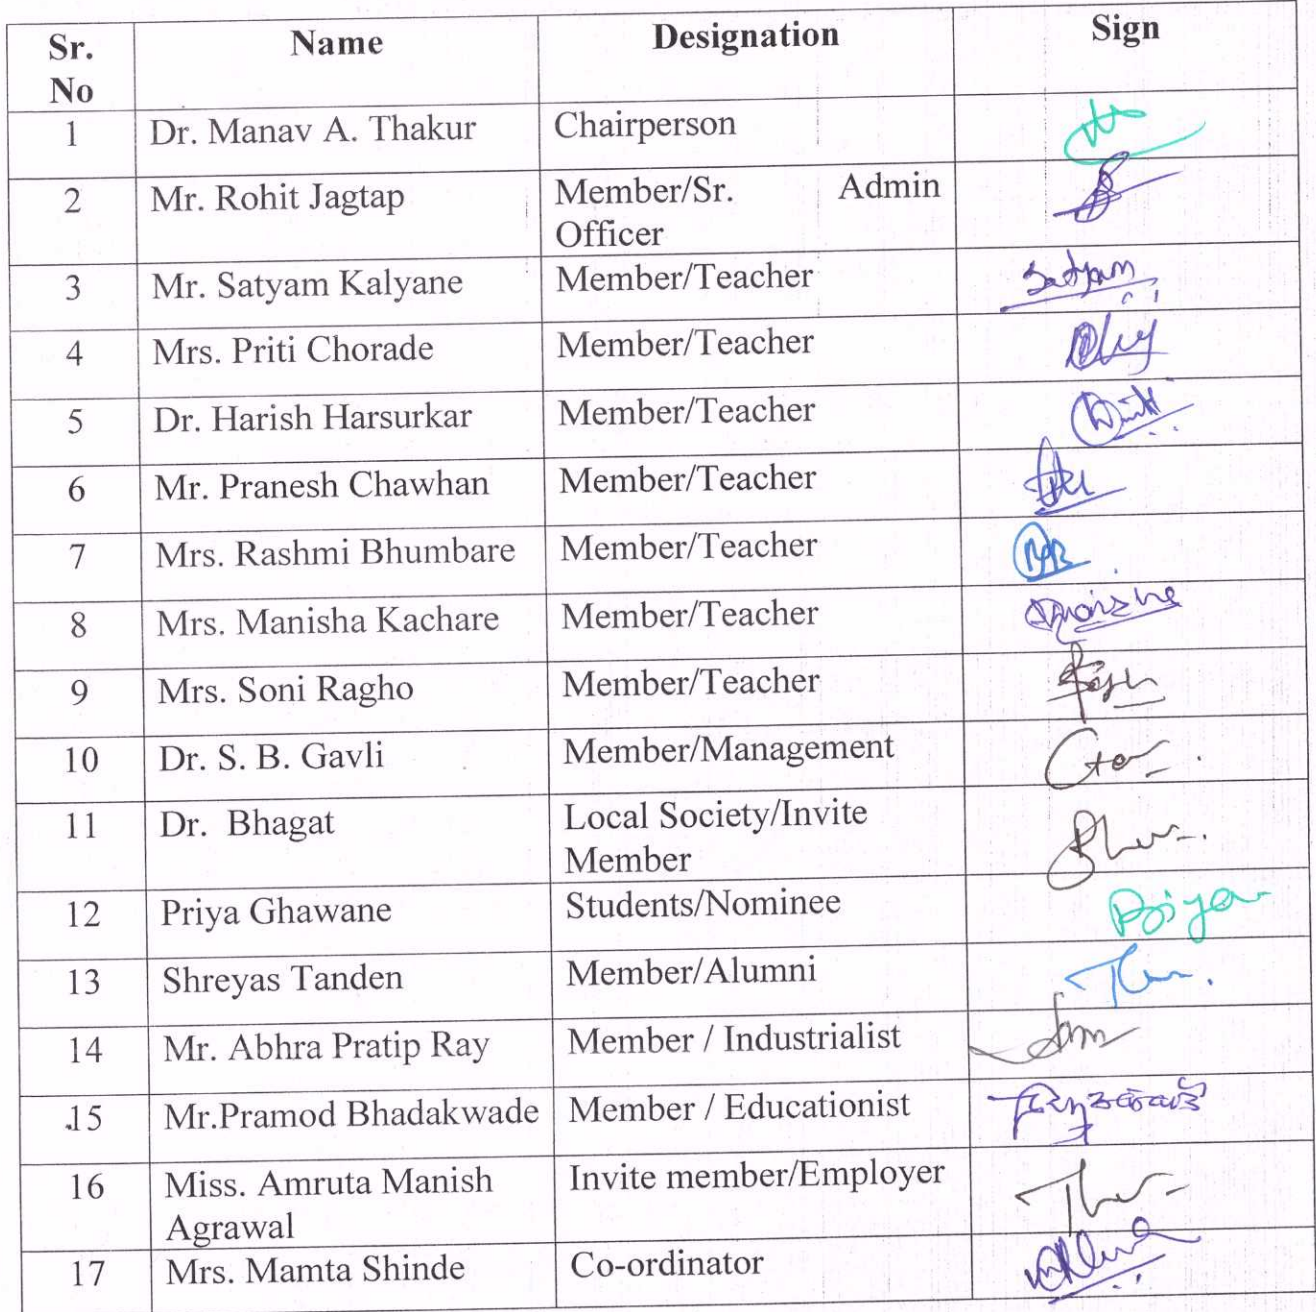 Sr. No Name Designation Sign
1 Dr. Manav A. Thakur Chairperson
2 Mr. Rohit Jagtap Member/Sr. Admin
Officer
3 Mr. Satyam Kalyane Member/Teacher Satyam
4 Mrs. Priti Chorade Member/Teacher
5 Dr. Harish Harsurkar Member/Teacher
6 Mr. Pranesh Chawhan Member/Teacher
7 Mrs. Rashmi Bhumbare Member/Teacher
8 Mrs. Manisha Kachare Member/Teacher
9 Mrs. Soni Ragho Member/Teacher
10 Dr. S. B. Gavli Member/Management
11 Dr. Bhagat Local Society/Invite
Member
12 Priya Ghawane Students/Nominee Priya
13 Shreyas Tanden Member/Alumni
14 Mr. Abhra Pratip Ray Member / Industrialist
.15 Mr.Pramod Bhadakwade Member / Educationist
16 Miss. Amruta Manish Invite member/Employer
Agrawal
17 Mrs. Mamta Shinde Co-ordinator